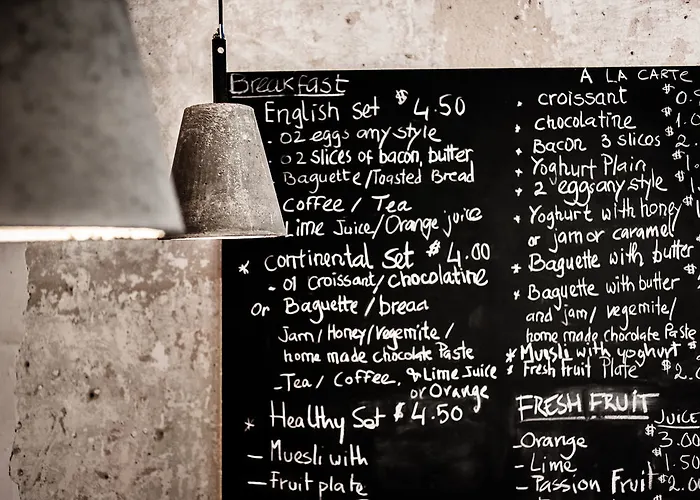 Breakfast
English Set $4.50
. 02 eggs any style
. 02 slices of bacon, butter
Baguette/Toasted Bread
Coffee / Tea
Lime Juice/Orange juice
* continental Set $4.00
- 01 Croissant/chocolatine
or Baguette/bread
Jam/Honey/vegemite/
home made chocolate Paste
- Tea / Coffee, & Lime Juice
or Orange
* Healthy Set $4.50
- Muesli with
- Fruit plate
A LA CARTE
croissant $0.
chocolatine $1.0
Bacon 3 slices $2.
Yoghurt Plain $1.
2 eggs any style $1.
Yoghurt with honey
or jam or caramel
* Baguette with butter
* Baguette with butter
and jam/ vegemite/
home made chocolate Paste
* Muesli with yoghurt $
* Fresh fruit Plate $2.0
FRESH FRUIT
JUICE
- Orange $3.00
- Lime $1.50
- Passion Fruit $2.0